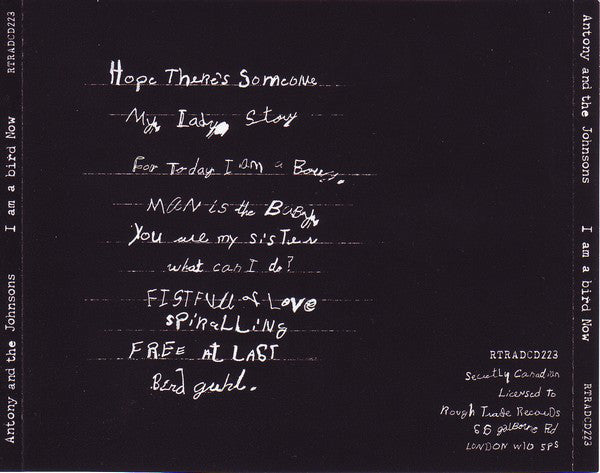 Antony and the Johnsons I am a bird Now RTRADCD223
Hope There's Someone
My Lady Story
For Today I am a Boy.
MAN is the Baby
You are my sisTer
what can I do?
FISTFull of LOVE
SPiRaLLiNG
FREE AT LAST
Bird guhl.
RTRADCD223
Secretly Canadian
Licensed To
Rough Trade Records
66 golborne Rd
LONDON W10 5PS
Antony and the Johnsons I am a bird Now RTRADCD223